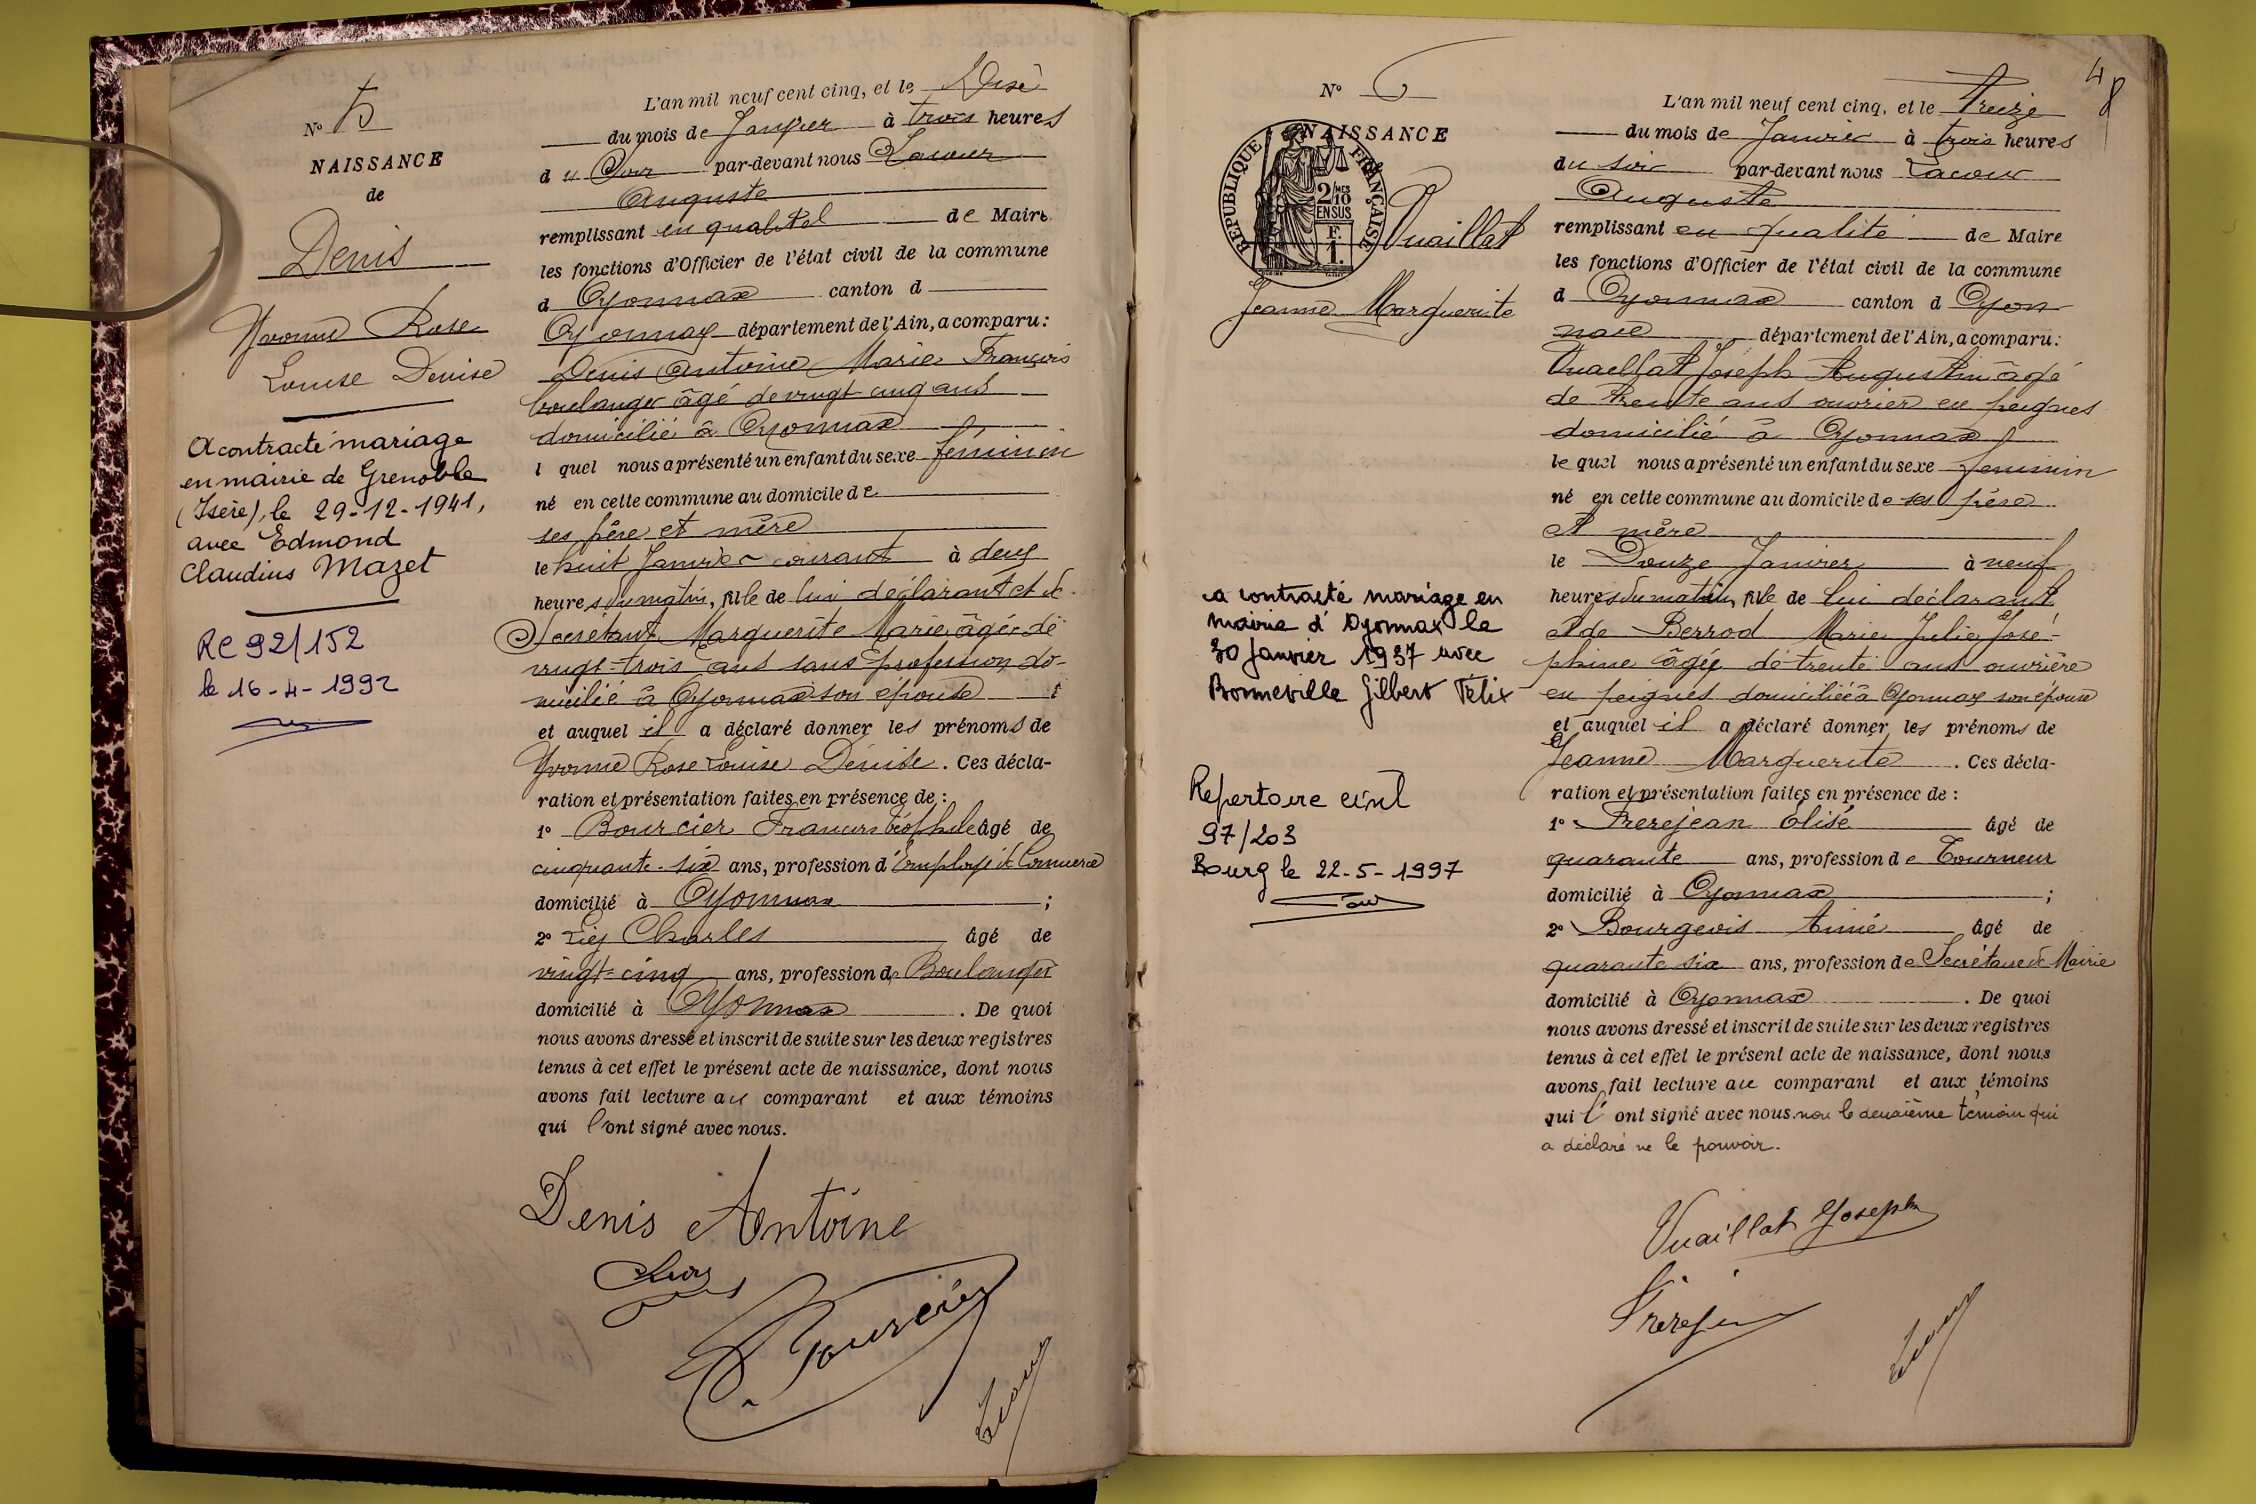 N° 5
NAISSANCE
de
Denis
Yvonne Rose
Louise Denise
A contracté mariage
en mairie de Grenoble
(Isère), le 29-12-1941,
avec Edmond
Claudius Mazet
RC 92/152
le 16-4-1992
L'an mil neuf cent cinq, et le
du mois de Janvier à trois heures
du Soir par-devant nous Lacour
Auguste
remplissant en qualité de Maire
les fonctions d'Officier de l'état civil de la commune
d Oyonnax canton d
Oyonnax département de l'Ain, a comparu:
Denis Antoine Marie François
boulanger âgé de vingt cinq ans
domicilié à Oyonnax
l quel nous a présenté un enfant du sexe féminin
né en cette commune au domicile de
ses père et mère
le huit Janvier courant à deux
heures du matin, fille de lui déclarant et de
Secrétant Marguerite Marie âgée de
vingt-trois ans sans profession do-
micilié à Oyonnax son épouse ;
et auquel il a déclaré donner les prénoms de
Yvonne Rose Louise Denise. Ces décla-
ration et présentation faites en présence de :
1° Bourcier Francois Théophile âgé de
cinquante-six ans, profession d'Employé de Commerce
domicilié à Oyonnax ;
2° Charles âgé de
vingt-cinq ans, profession de Boulanger
domicilié à Oyonnax . De quoi
nous avons dressé et inscrit de suite sur les deux registres
tenus à cet effet le présent acte de naissance, dont nous
avons fait lecture au comparant et aux témoins
qui l'ont signé avec nous.
Denis Antoine
Bourcier
Lacour
48
N° 6
NAISSANCE
RÉPUBLIQUE FRANÇAISE
2/10 MES
EN SUS
F.
1.
Vuaillat
Jeanne Marguerite
a contracté mariage en
mairie d'Oyonnax le
30 Janvier 1937 avec
Bonneville Gilbert Félix
Repertoire civil
97/203
Bourg le 22-5-1997
L'an mil neuf cent cinq, et le treize
du mois de Janvier à trois heures
du soir par-devant nous Lacour
Auguste
remplissant en qualité de Maire
les fonctions d'Officier de l'état civil de la commune
d Oyonnax canton d Oyon
nax département de l'Ain, a comparu:
Vuaillat Joseph Augustin âgé
de trente ans ouvrier en peignes
domicilié à Oyonnax
le quel nous a présenté un enfant du sexe feminin
né en cette commune au domicile de ses père
et mère
le Douze Janvier à neuf
heures du matin, fille de lui déclarant
et de Berrod Marie Julie José-
phine âgée de trente ans ouvrière
en peignes domiciliée à Oyonnax son épouse
et auquel il a déclaré donner les prénoms de
Jeanne Marguerite . Ces décla-
ration et présentation faites en présence de :
1° Frerejean Élisé âgé de
quarante ans, profession de Tourneur
domicilié à Oyonnax ;
2° Bourgeois Aimé âgé de
quarante six ans, profession de Secrétaire de Mairie
domicilié à Oyonnax . De quoi
nous avons dressé et inscrit de suite sur les deux registres
tenus à cet effet le présent acte de naissance, dont nous
avons fait lecture au comparant et aux témoins
qui l'ont signé avec nous. non le deuxième témoin qui
a déclaré ne le pouvoir.
Vuaillat Joseph
Frerejean
Lacour